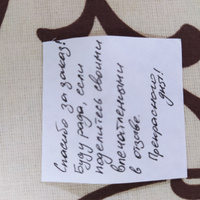 Спасибо за заказ!
Буду рада, если
поделитесь своими
впечатлениями
в отзыве.
Прекрасного
дня!